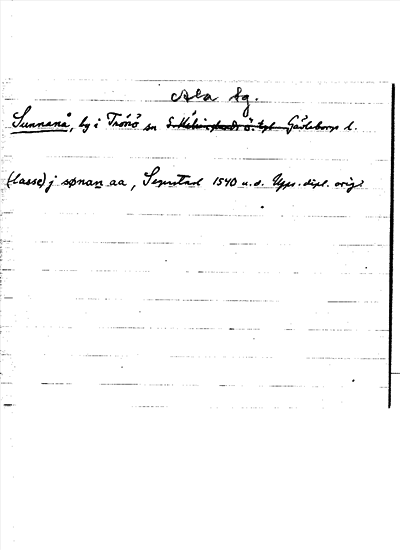 Ala sg.
Sunnanå, by i Trönö sn S. Hälsinglands ö. tgl. Gävleborgs l.
(lasse) j sønan aa, 1540 u.d. Upps. dipl. orig.